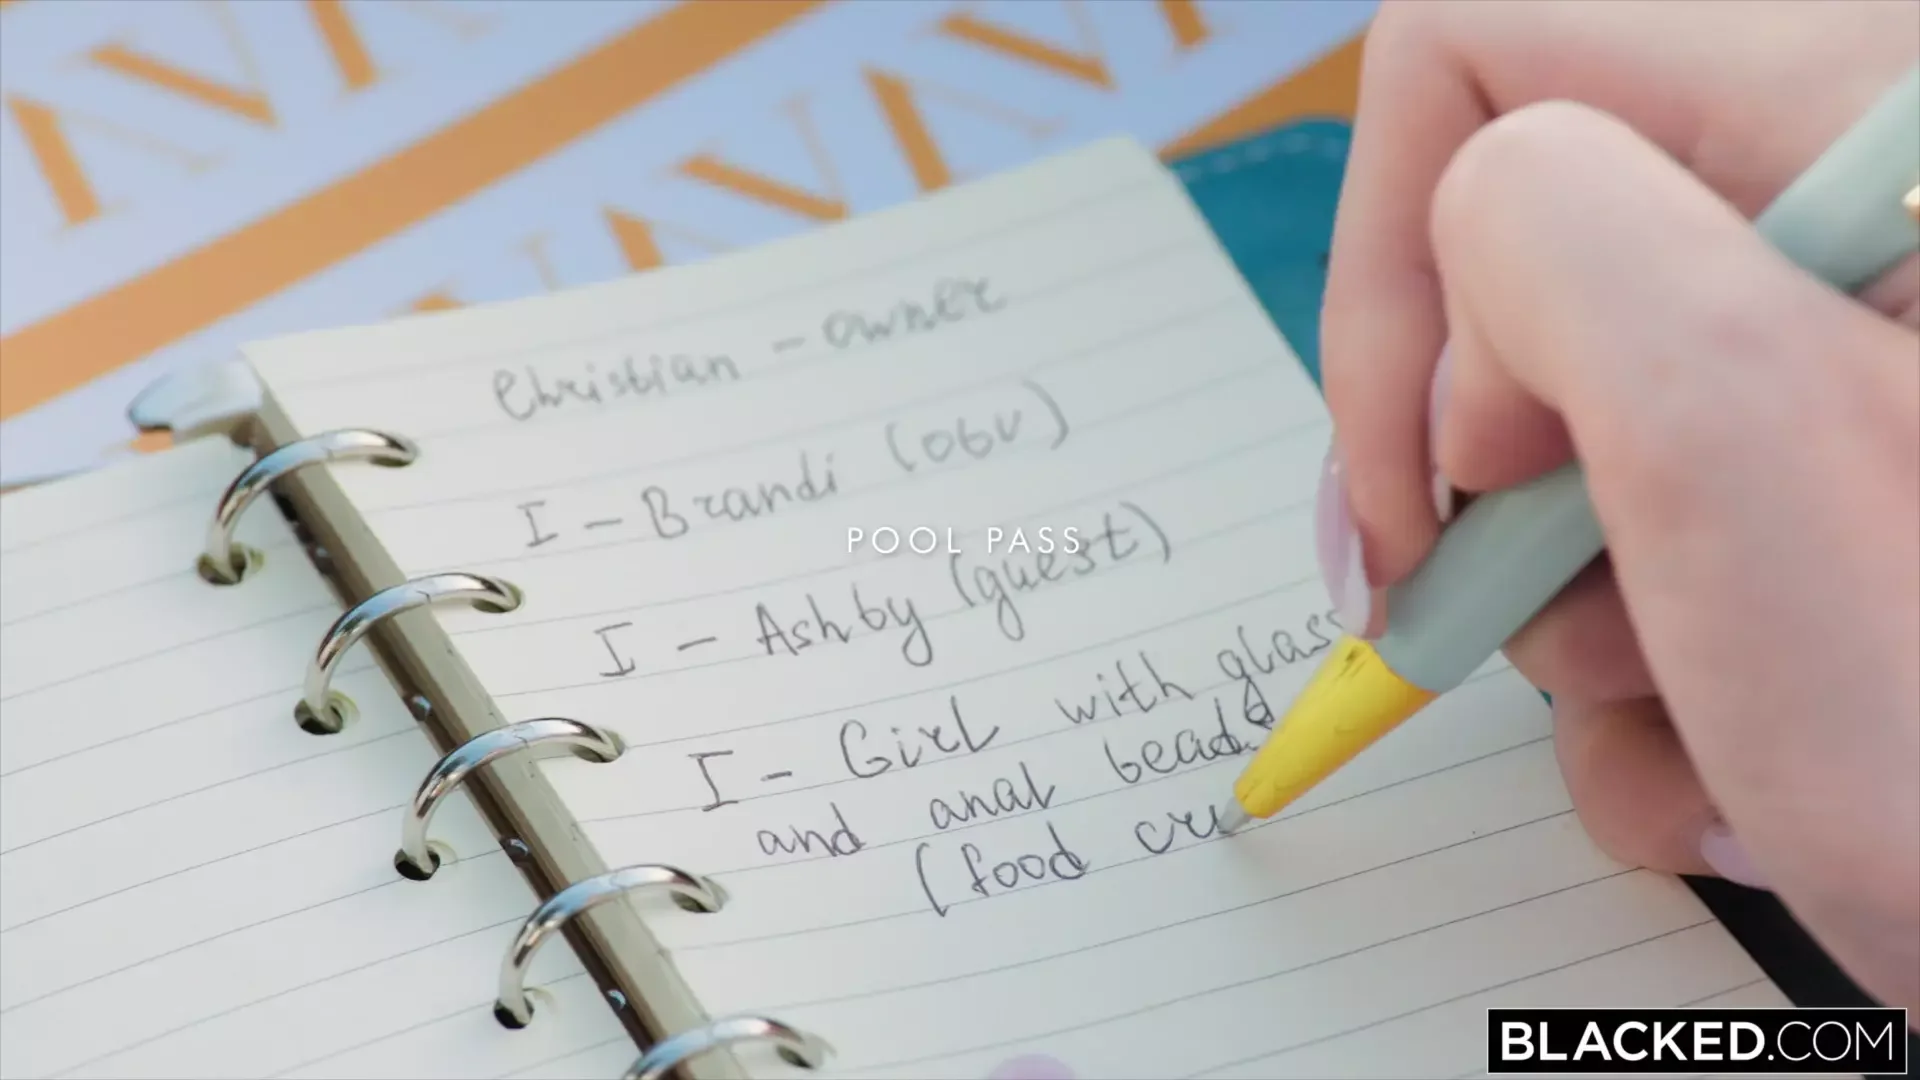 Christian - owner
I - Brandi (obv)
POOL PASS
I - Ashby (guest)
I - Girl with glass
and anal beads
(food cru
BLACKED.COM